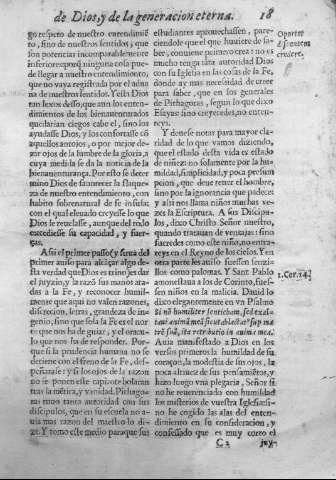 de Dios, y de la generacion eterna. 18
go respeto de nuestro entendimiẽ
to, sino de nuestros sentidos, que
son potencias incomparablemente
inferiores: porq̃ ninguna cosa pue-
de llegar a nuestro entendimiento,
que no vaya registrada por el adua
na de nuestros sentidos. Y esta Dios
tan lexos desso, que aun los enten-
dimientos de los bienauenturados
quedarian ciegos cabe el, sino los
ayudasse Dios, y los confortasse cõ
aquellos antojos, o por mejor de-
zir ojos de la lumbre de la gloria, a
cuya medida se da la noticia de la
bienauenturança. Por esto se deter
mino Dios de fauorecer la flaqueza
de nuestro entendimiento, con
habito sobrenatural de fe infusa:
con el qual eleuado creyesse lo que
Dios le reuelasse, aunque del todo
excediesse su capacidad, y fuer-
ças.
Assi el primer passo y sea el
primer auiso para alcançar algo de
sta verdad que Dios es trino, es dar
el juyzio, y la razõ sus manos ata-
das a la Fe, y reconocer humil-
mente que aqui no valen razones,
discrecion, letras, grandeza de in-
genio, sino que sola la Fe es el nor-
te que nos ha de guiar, y el oracu-
lo, que nos ha de responder. Por-
que si la prudencia humana no se
detiene con el freno de la Fe, des-
peñarase: y si los ojos de la razon
no se ponen este capirote bolaran
tras la mentira, y vanidad. Pithago-
ras tuuo tanta autoridad con sus
discipulos, que en su escuela no a-
uia mas razon del maestro lo di-
ze. Y tomo este medio para que sus
estudiantes aprouechassen, pare-
ciendole que el que huuiere de sa-
ber, conuiene primero crea: no es
mucho tenga tãta autoridad Dios
con su Iglesia en las cosas de la Fe,
donde ay mas necesidad de creer
para saber, que en los generales
de Pithagoras, segun lo que dixo
Esayas: sino creyeredes, no enten-
reys.
Y denese notar para mayor cla-
ridad de lo que vamos diziendo,
que el estado desta vida es estado
de niñez: no solamente por la hu-
mildad, simplicidad, y poca presum
pcion, que deue tener el hombre,
sino por la ignorancia que padece
y assi nos llama niños muchas ve-
zes la Escriptura. A sus Discipu-
los, dixo Christo Señor nuestro,
quando tratauan de ventajas: sino
sucredes como este niño, no entra-
reys en el Reyno de los cielos. Y en
otra parte les auiso fuessen senzi-
llos como palomas. Y Sant Pablo
amonestaua a los de Corinto, fues-
sen niños en la malicia. Dauid lo
dixo elegantemente en vn Psalmo
Si nõ humiliter sentiebam, sed exal-
taui animã meã: sicut ablactat' sup ma
trẽ suã, ita retributio in anima mea.
Auia manifestado a Dios en los
versos primeros la humildad de su
coraçon, la modestia de sus ojos, la
poca altiuez de sus pensamiẽtos, y
hizo luego vna plegaria, Señor si
no he reuerenciado con humildad
los misterios de vuestra Iglesia: si-
no he cogido las alas del enten-
dimiento en su consideracion, y
confessado que es muy corto el
C 2 juy-
Oportet
1. Cor. 14.